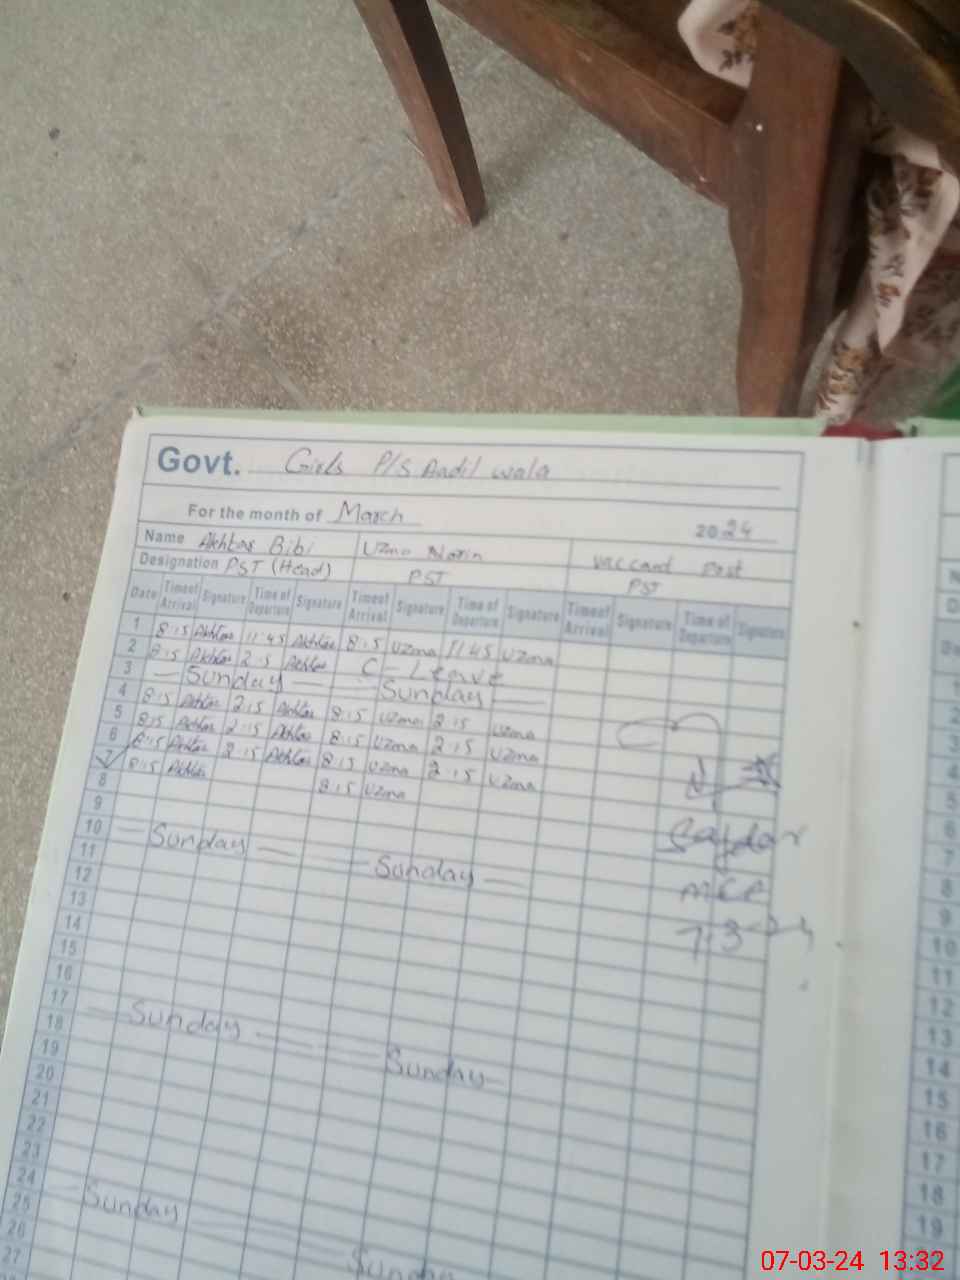 Govt. Girls P/S Aadil wala
For the month of March 2024
Name Akhtar Bibi Uzma Norin vaccand Post
Designation PST (Head) PST PST
Date Time of Arrival Signature Time of Departure Signature Time of Arrival Signature Time of Departure Signature Time of Arrival Signature Time of Departure Signature
1 8:15 Akhtar 11:45 Akhtar 8:15 Uzma 11:45 Uzma
2 8:15 Akhtar 2:15 Akhtar C - Leave
3 — Sunday — — Sunday —
4 8:15 Akhtar 2:15 Akhtar 8:15 Uzma 2:15 Uzma
5 8:15 Akhtar 2:15 Akhtar 8:15 Uzma 2:15 Uzma
6 8:15 Akhtar 2:15 Akhtar 8:15 Uzma 2:15 Uzma
7 8:15 Akhtar 8:15 Uzma
8
9
10 — Sunday — — Sunday —
11
12
13
14
15
16
17 — Sunday — — Sunday —
18
19
20
21
22
23
24 — Sunday — Sunday
25
26
27
7-3-24
1
2
3
4
5
6
7
8
9
10
11
12
13
14
15
16
17
18
19
07-03-24 13:32